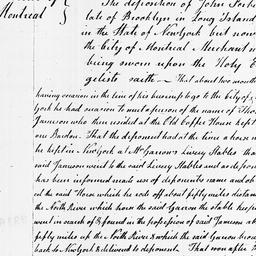 Montreal
The deposition of John
late of Brooklyn in Long Island
in the State of New York but now
the City of Montreal Merchant
being sworn upon the Holy E
gelists saith — That about two months
having occasion in the time of his business to go to the City of
York he had occasion to meet a person of the name of
Jameson who then resided at the Old Coffee House kept
one Bardon. That the deponent had at the time a horse w
he kept in New York at McGarrons Livery Stables that
said Jameson went to the said Livery Stables and as depon
has been informed made use of deponents name and ob
ed the said Horse which he rode off about fifty miles distan
the North River which horse the said Garron the stable keepe
went in search of & found in the possession of said Jameson a
fifty miles up the North River & which the said Garron broug
back to New York & delivered to deponent. That soon after